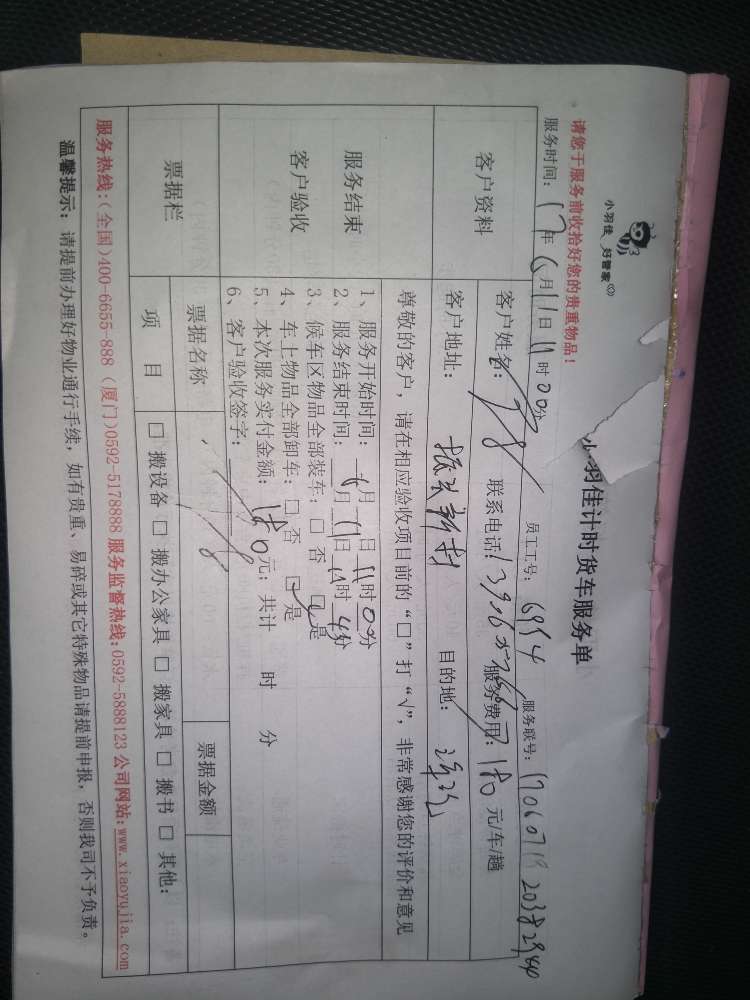 小羽佳 好管家
小羽佳计时货车服务单
请您于服务前收拾好您的贵重物品！
员工工号：6954 服务联号：
服务时间：17年6月11日11时00分
客户资料
客户姓名： 联系电话： 服务费用：180元/车/趟
客户地址： 目的地：
服务结束
客户验收
尊敬的客户，请在相应验收项目前的“□”打“√”，非常感谢您的评价和意见
1、服务开始时间：6月11日11时0分
2、服务结束时间：
3、候车区物品全部装车：□否 ☑是
4、车上物品全部卸车：□否 ☑是
5、本次服务实付金额：180元；共计 时 分
6、客户验收签字：
票据栏
票据名称 票据金额
项目 □搬设备 □搬办公家具 □搬家具 □搬书 □其他：
服务热线：（全国）400-6655-888（厦门）0592-5178888 服务监督热线：0592-5888123 公司网站：www.xiaoyujia.com
温馨提示：请提前办理好物业通行手续，如有贵重、易碎或其它特殊物品请提前申报，否则我司不予负责。